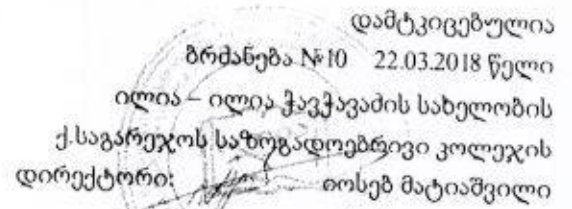 დამტკიცებულია
ბრძანება №10 22.03.2018 წელი
ილია – ილია ჭავჭავაძის სახელობის
ქ.საგარეჯოს საზოგადოებრივი კოლეჯის
დირექტორი: იოსებ მატიაშვილი